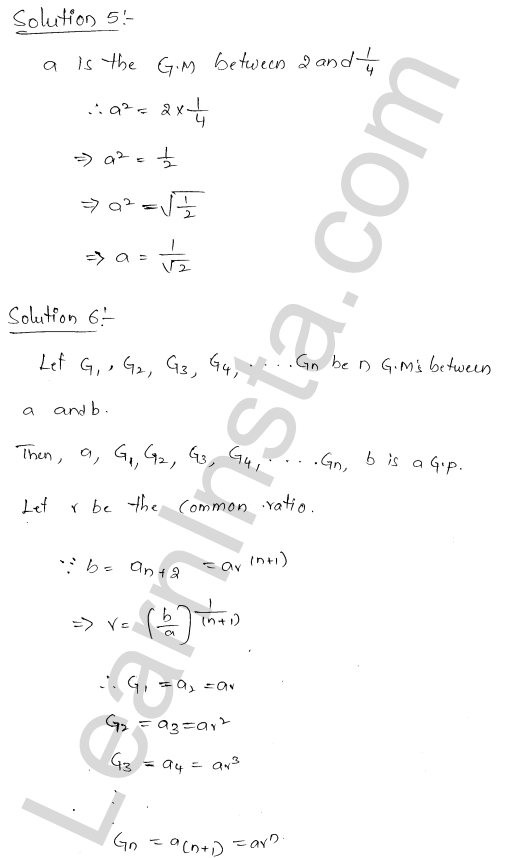 Solution 5:-
a is the G.M between 2 and 1/4
∴ a² = 2 × 1/4
⇒ a² = 1/2
⇒ a² = √(1/2)
⇒ a = 1/√2
Solution 6:-
Let G₁, G₂, G₃, G₄, ..... Gn be n G.M's between
a and b.
Then, a, G₁, G₂, G₃, G₄, ..... Gn, b is a G.p.
Let r be the common ratio.
∵ b = aₙ₊₂ = ar⁽ⁿ⁺¹⁾
⇒ r = (b/a)^(1/(n+1))
∴ G₁ = a₂ = ar
G₂ = a₃ = ar²
G₃ = a₄ = ar³
⋮
Gn = a₍ₙ₊₁₎ = arⁿ.
LearnInsta.com